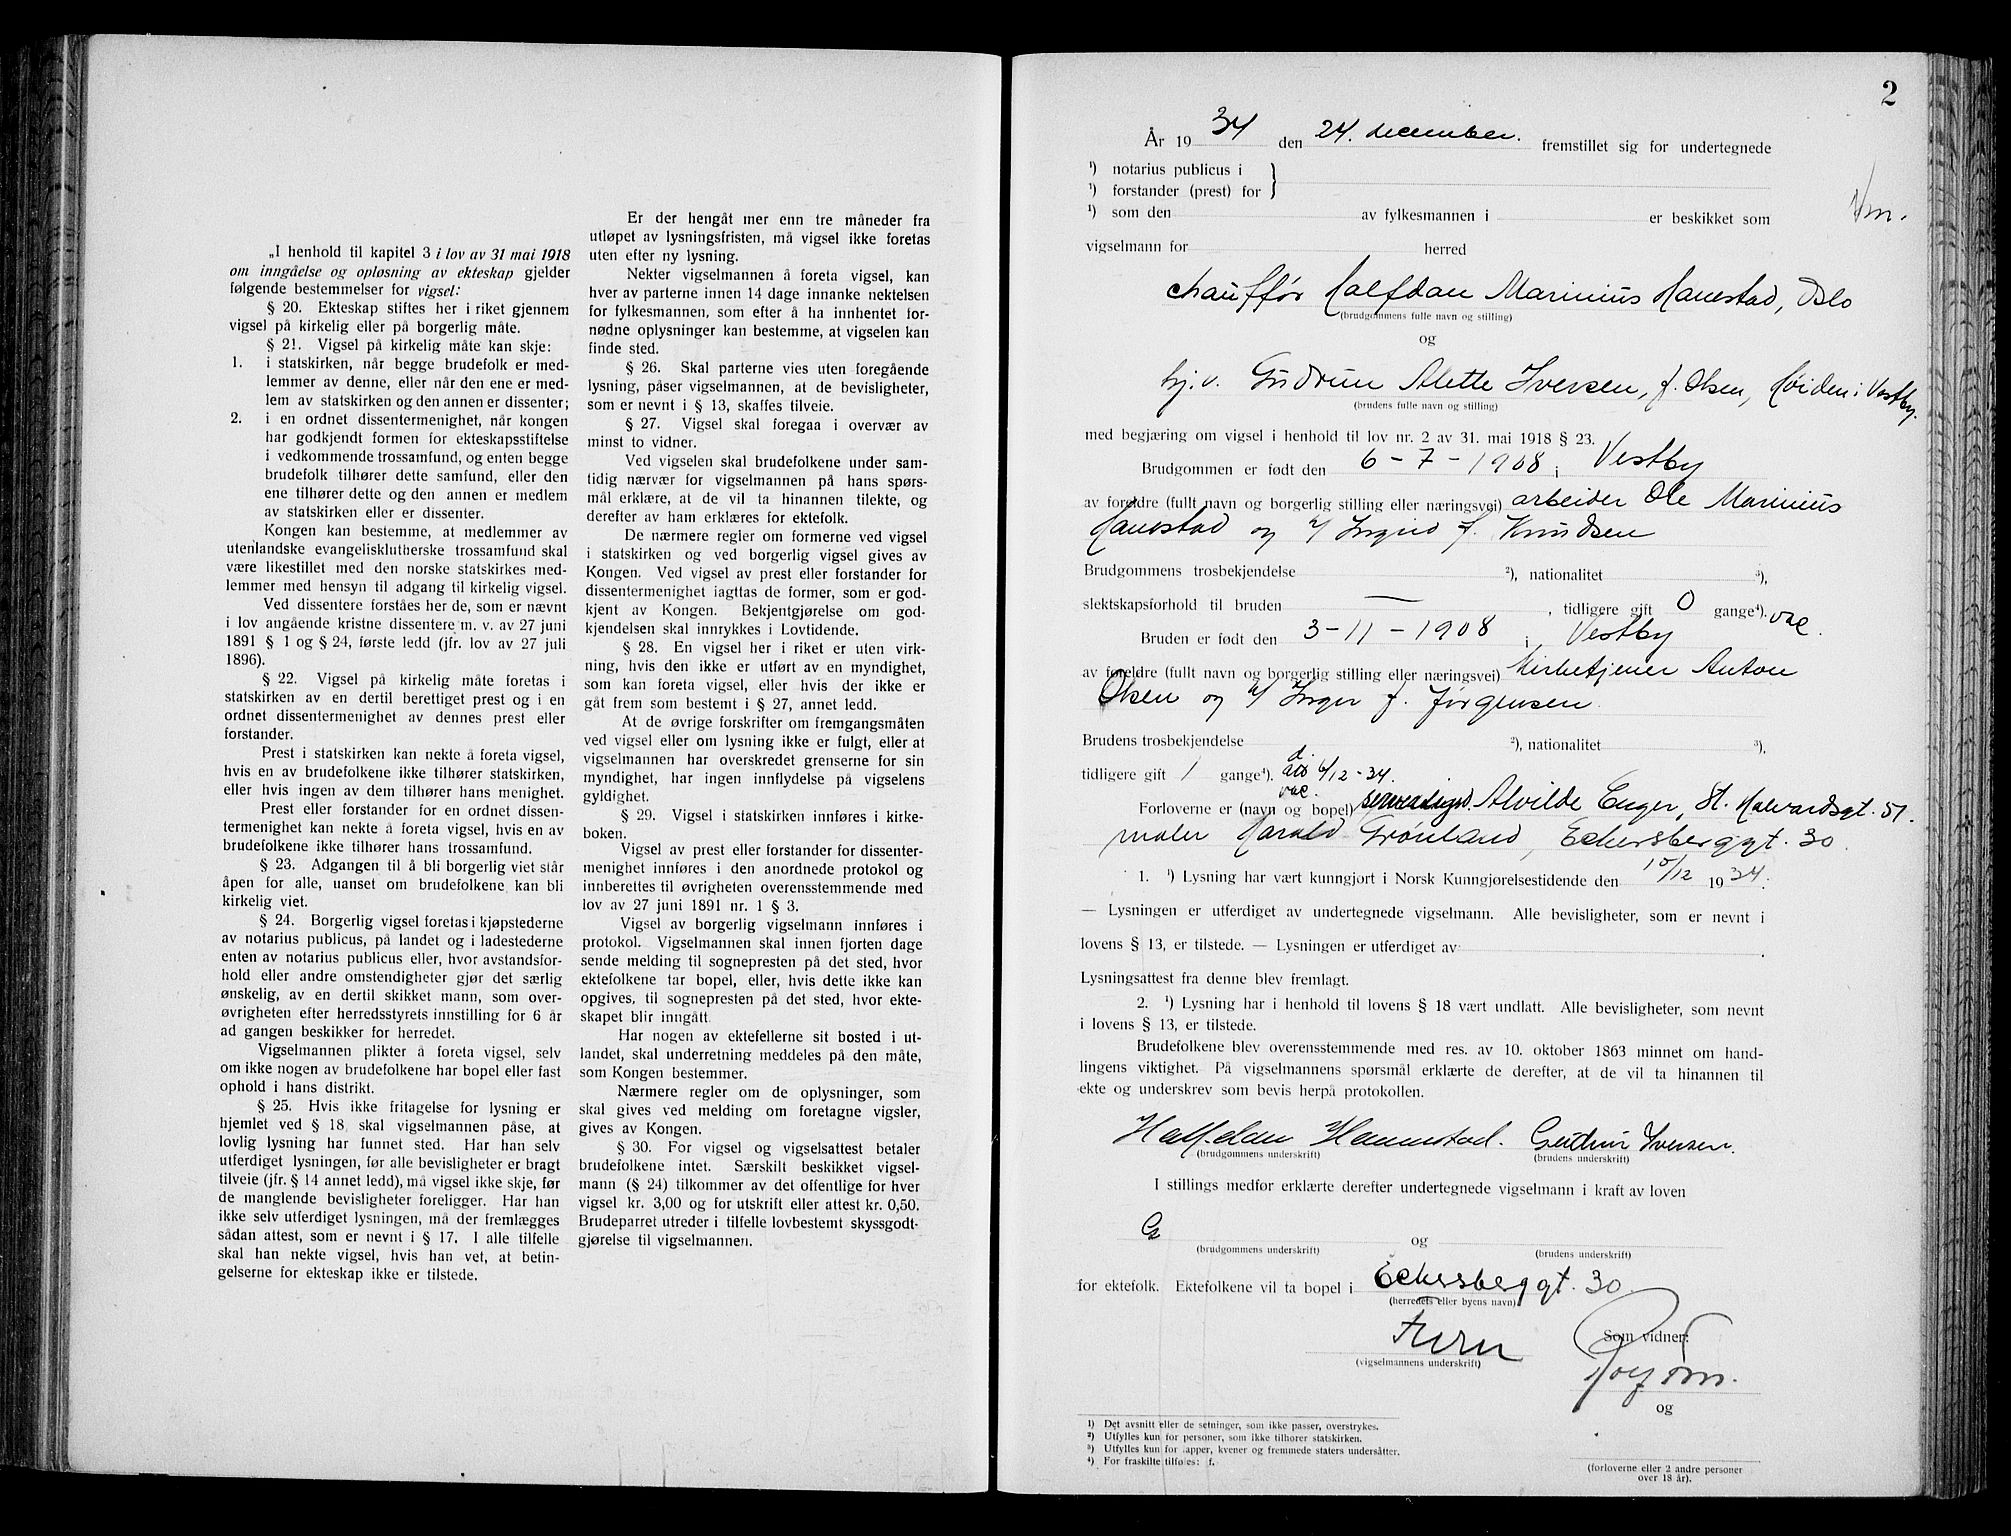 „I henhold til kapitel 3 i lov av 31 mai 1918
om inngåelse og opløsning av ekteskap gjelder
følgende bestemmelser for vigsel:
§ 20. Ekteskap stiftes her i riket gjennem
vigsel på kirkelig eller på borgerlig måte.
§ 21. Vigsel på kirkelig måte kan skje:
1. i statskirken, når begge brudefolk er med-
lemmer av denne, eller når den ene er med-
lem av statskirken og den annen er dissenter;
2. i en ordnet dissentermenighet, når kongen
har godkjendt formen for ekteskapsstiftelse
i vedkommende trossamfund, og enten begge
brudefolk tilhører dette samfund, eller den
ene tilhører dette og den annen er medlem
av statskirken eller er dissenter.
Kongen kan bestemme, at medlemmer av
utenlandske evangelisklutherske trossamfund skal
være likestillet med den norske statskirkes med-
lemmer med hensyn til adgang til kirkelig vigsel.
Ved dissentere forståes her de, som er nævnt
i lov angående kristne dissentere m. v. av 27 juni
1891 § 1 og § 24, første ledd (jfr. lov av 27 juli
1896).
§ 22. Vigsel på kirkelig måte foretas i
statskirken av en dertil berettiget prest og i en
ordnet dissentermenighet av dennes prest eller
forstander.
Prest i statskirken kan nekte å foreta vigsel,
hvis en av brudefolkene ikke tilhører statskirken,
eller hvis ingen av dem tilhører hans menighet.
Prest eller forstander for en ordnet dissen-
termenighet kan nekte å foreta vigsel, hvis en av
brudefolkene ikke tilhører hans trossamfund.
§ 23. Adgangen til å bli borgerlig viet står
åpen for alle, uanset om brudefolkene kan bli
kirkelig viet.
§ 24. Borgerlig vigsel foretas i kjøpstederne
av notarius publicus, på landet og i ladestederne
enten av notarius publicus eller, hvor avstandsfor-
hold eller andre omstendigheter gjør det særlig
ønskelig, av en dertil skikket mann, som over-
øvrigheten efter herredsstyrets innstilling for 6 år
ad gangen beskikker for herredet.
Vigselmannen plikter å foreta vigsel, selv
om ikke nogen av brudefolkene har bopel eller fast
ophold i hans distrikt.
§ 25. Hvis ikke fritagelse for lysning er
hjemlet ved § 18, skal vigselmannen påse, at
lovlig lysning har funnet sted. Har han selv
utferdiget lysningen, før alle bevisligheter er bragt
tilveie (jfr. § 14 annet ledd), må vigsel ikke skje, før
de manglende bevisligheter foreligger. Har han
ikke selv utferdiget lysningen, må der fremlægges
sådan attest, som er nevnt i § 17. I alle tilfelle
skal han nekte vigsel, hvis han vet, at betin-
gelserne for ekteskap ikke er tilstede.
Er der hengåt mer enn tre måneder fra
utløpet av lysningsfristen, må vigsel ikke foretas
uten efter ny lysning.
Nekter vigselmannen å foreta vigsel, kan
hver av parterne innen 14 dage innanke nektelsen
for fylkesmannen, som efter å ha innhentet for-
nødne oplysninger kan bestemme, at vigselen kan
finde sted.
§ 26. Skal parterne vies uten foregående
lysning, påser vigselmannen, at de bevisligheter,
som er nevnt i § 13, skaffes tilveie.
§ 27. Vigsel skal foregaa i overvær av
minst to vidner.
Ved vigselen skal brudefolkene under sam-
tidig nærvær for vigselmannen på hans spørs-
mål erklære, at de vil ta hinannen tilekte, og
derefter av ham erklæres for ektefolk.
De nærmere regler om formerne ved vigsel
i statskirken og ved borgerlig vigsel gives av
Kongen. Ved vigsel av prest eller forstander for
dissentermenighet iagttas de former, som er god-
kjent av Kongen. Bekjentgjørelse om god-
kjendelsen skal innrykkes i Lovtidende.
§ 28. En vigsel her i riket er uten virk-
ning, hvis den ikke er utført av en myndighet,
som kan foreta vigsel, eller hvis der ikke er
gåt frem som bestemt i § 27, annet ledd.
At de øvrige forskrifter om fremgangsmåten
ved vigsel eller om lysning ikke er fulgt, eller at
vigselmannen har overskredet grenserne for sin
myndighet, har ingen innflydelse på vigselens
gyldighet.
§ 29. Vigsel i statskirken innføres i kirke-
boken.
Vigsel av prest eller forstander for dissenter-
menighet innføres i den anordnede protokol og
innberettes til øvrigheten overensstemmende med
lov av 27 juni 1891 nr. 1 § 3.
Vigsel av borgerlig vigselmann innføres i
protokol. Vigselmannen skal innen fjorten dage
sende melding til sognepresten på det sted, hvor
ektefolkene tar bopel, eller, hvis dette ikke kan
opgives, til sognepresten på det sted, hvor ekte-
skapet blir inngått.
Har nogen av ektefellerne sit bosted i ut-
landet, skal underretning meddeles på den måte,
som Kongen bestemmer.
Nærmere regler om de oplysninger, som
skal gives ved melding om foretagne vigsler,
gives av Kongen.
§ 30. For vigsel og vigselsattest betaler
brudefolkene intet. Særskilt beskikket vigsel-
mann (§ 24) tilkommer av det offentlige for hver
vigsel kr. 3,00 og for utskrift eller attest kr. 0,50.
Brudeparret utreder i tilfelle lovbestemt skyssgodt-
gjørelse til vigselmannen.
2
År 1934 den 24. december. fremstillet sig for undertegnede
¹) notarius publicus i }
¹) forstander (prest) for
¹) som den av fylkesmannen i er beskikket som
Vm.
vigselmann for herred
chauffør Halfdan Marinius Hanestad, Oslo
(brudgommens fulle navn og stilling)
og
hj.v. Gudrun Alette Iversen, f. Olsen, Høiden i Vestby.
(brudens fulle navn og stilling)
med begjæring om vigsel i henhold til lov nr. 2 av 31. mai 1918 § 23.
Brudgommen er født den 6-7-1908 i Vestby
av foreldre (fullt navn og borgerlig stilling eller næringsvei) arbeider Ole Marinius
Hanestad og h/ Ingrid f. Knudsen
Brudgommens trosbekjendelse ²), nationalitet ³),
slektskapsforhold til bruden — , tidligere gift 0 gange⁴). vac.
Bruden er født den 3-11-1908 i Vestby
av foreldre (fullt navn og borgerlig stilling eller næringsvei) Kirketjener Anton
Olsen og h/ Inger f. Jørgensen.
Brudens trosbekjendelse ²), nationalitet ³),
d.
tidligere gift 1 gange⁴). att 6/12-34.
vac.
Forloverne er (navn og bopel) Alvilde Enger, St. Halvardsgt. 51.
maler Harald Grønland, Eckersberggt. 30.
1. ¹) Lysning har vært kunngjort i Norsk Kunngjørelsestidende den 10/12 1934.
— Lysningen er utferdiget av undertegnede vigselmann. Alle bevisligheter, som er nevnt i
lovens § 13, er tilstede. — Lysningen er utferdiget av
Lysningsattest fra denne blev fremlagt.
2. ¹) Lysning har i henhold til lovens § 18 vært undlatt. Alle bevisligheter, som nevnt
i lovens § 13, er tilstede.
Brudefolkene blev overensstemmende med res. av 10. oktober 1863 minnet om hand-
lingens viktighet. På vigselmannens spørsmål erklærte de derefter, at de vil ta hinannen til
ekte og underskrev som bevis herpå protokollen.
Halfdan Hannestad. Gudrun Iversen.
(brudgommens underskrift) (brudens underskrift)
I stillings medfør erklærte derefter undertegnede vigselmann i kraft av loven
G og
(brudgommens underskrift) (brudens underskrift)
for ektefolk. Ektefolkene vil ta bopel i Eckersberggt. 30.
(herredets eller byens navn)
Som vidner:
(vigselmannens underskrift)
og
¹) Det avsnitt eller de setninger, som ikke passer, overstrykes.
²) Utfylles kun for personer, som ikke tilhører statskirken.
³) Utfylles kun for lapper, kvener og fremmede staters undersåtter.
⁴) For fraskilte tilføies: f.
(forloverne eller 2 andre personer
over 18 år).